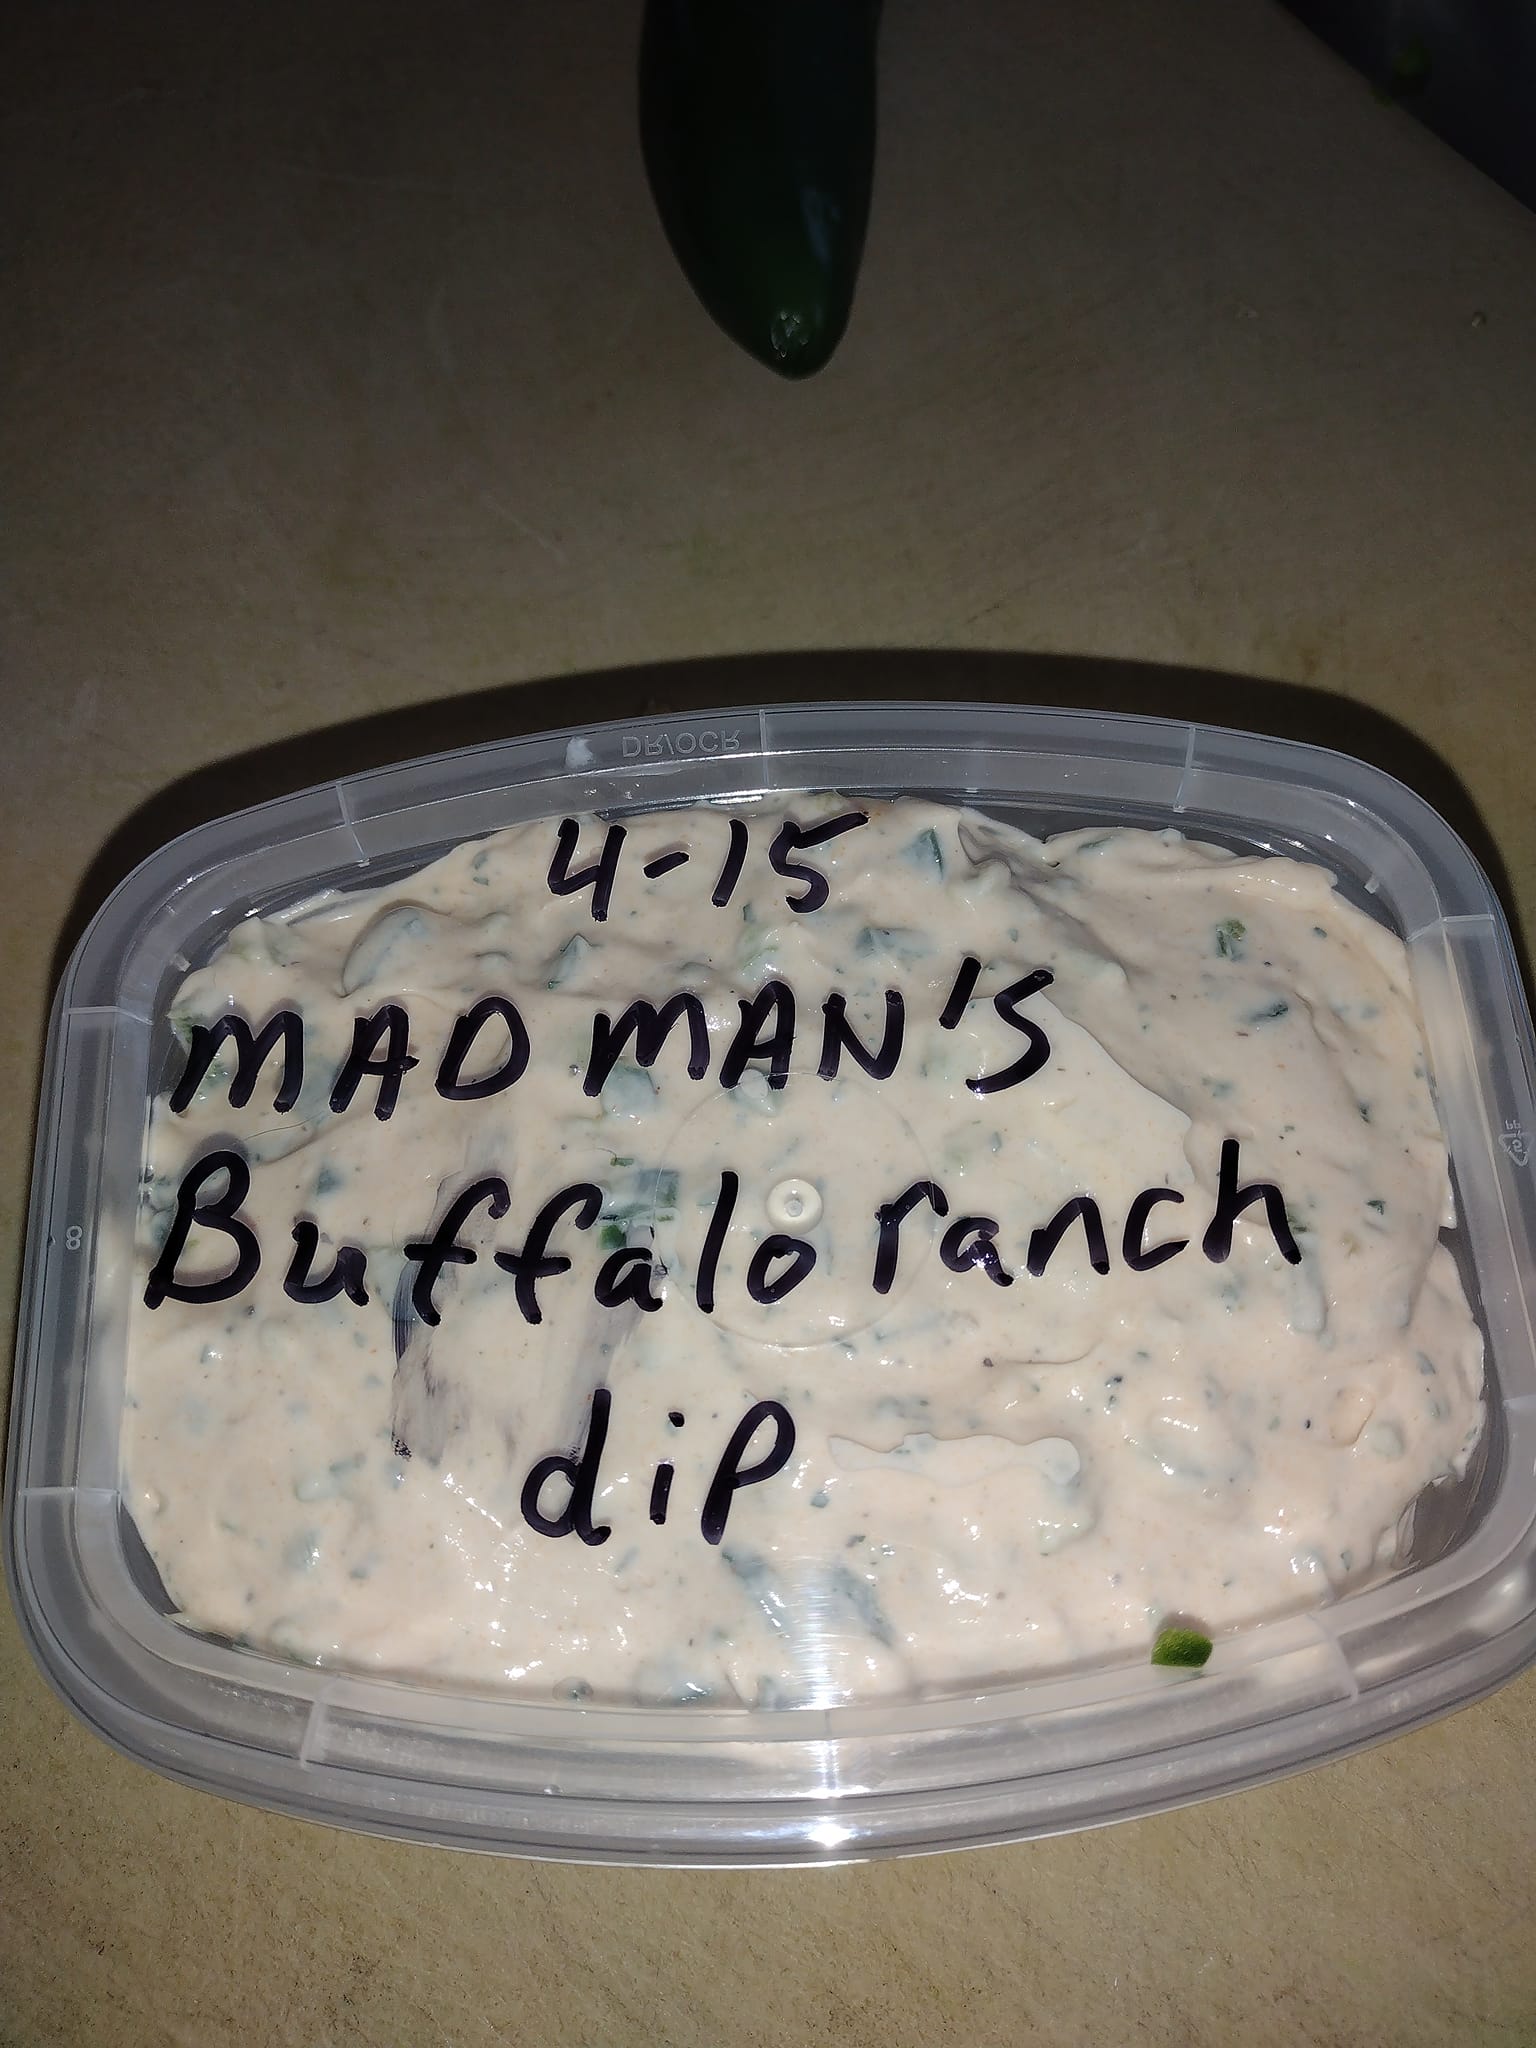 DR/OCR
4-15
MAD MAN'S
Buffalo ranch
dip
8